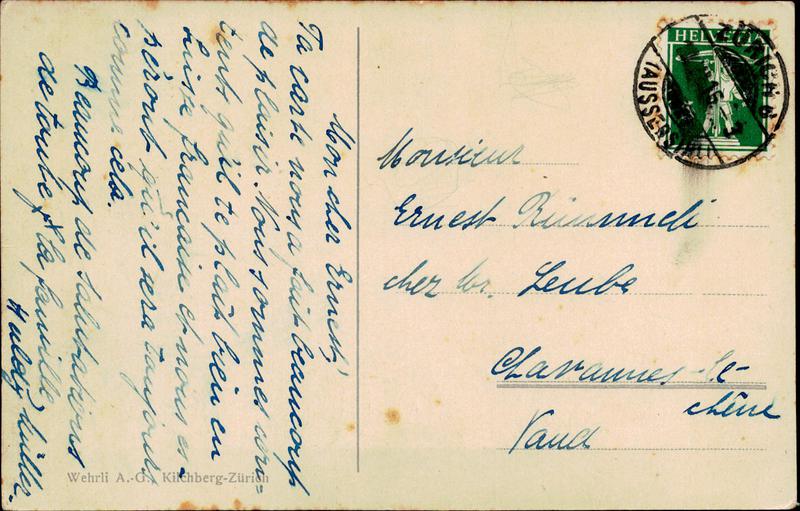 Mon cher Ernest,
Ta carte nous a fait beaucoup
de plaisir. Nous sommes con-
tents qu'il te plaît bien en
Suisse française et nous es-
pérons qu'il sera toujours
comme cela.
Beaucoup de salutations
de toute la famille
Wehrli A.-G., Kilchberg-Zürich
HELVETIA
ZÜRICH
(AUSSERSIHL)
Monsieur
Ernest Rümmeli
chez Mr. Leube
Chavannes-le-
chêne
Vaud